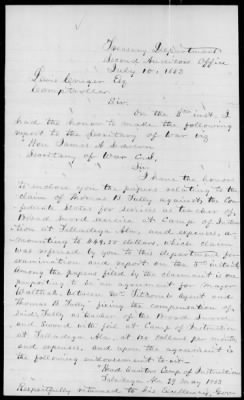 Treasury Department
Second Auditors Office
July 10, 1863
Lewis Cruger Esq
Comptroller
Sir
On the 8th inst. I
had the honor to make the following
report to the Secretary of War viz
Hon James A Seddon
Secretary of War C.S.
Sir
I have the honor
to enclose you the papers relating to the
claim of Thomas B Tully against the Con-
federate States for services as teacher of
Broad Sword exercise at Camp of Instruc
tion at Talladega Ala, and expenses, a-
mounting to 449.25 dollars, which claim
was referred by you to this department for
examination and report on the 3d inst.
Among the papers filed by the claimant is one
purporting to be an agreement for Major
Walthall between Agent and
Thomas B Tully, fixing the compensation of
said Tully as teacher of the Broad Sword
and Sword with foil at Camp of Instruction
at Talladega Ala, at 150 dollars per month
and expenses, and upon the agreement is
the following endorsement to wit
Head Quarters Camp of Instruction
Talladega Ala 29 May 1863
Respectfully returned to His Excellency, Gov-